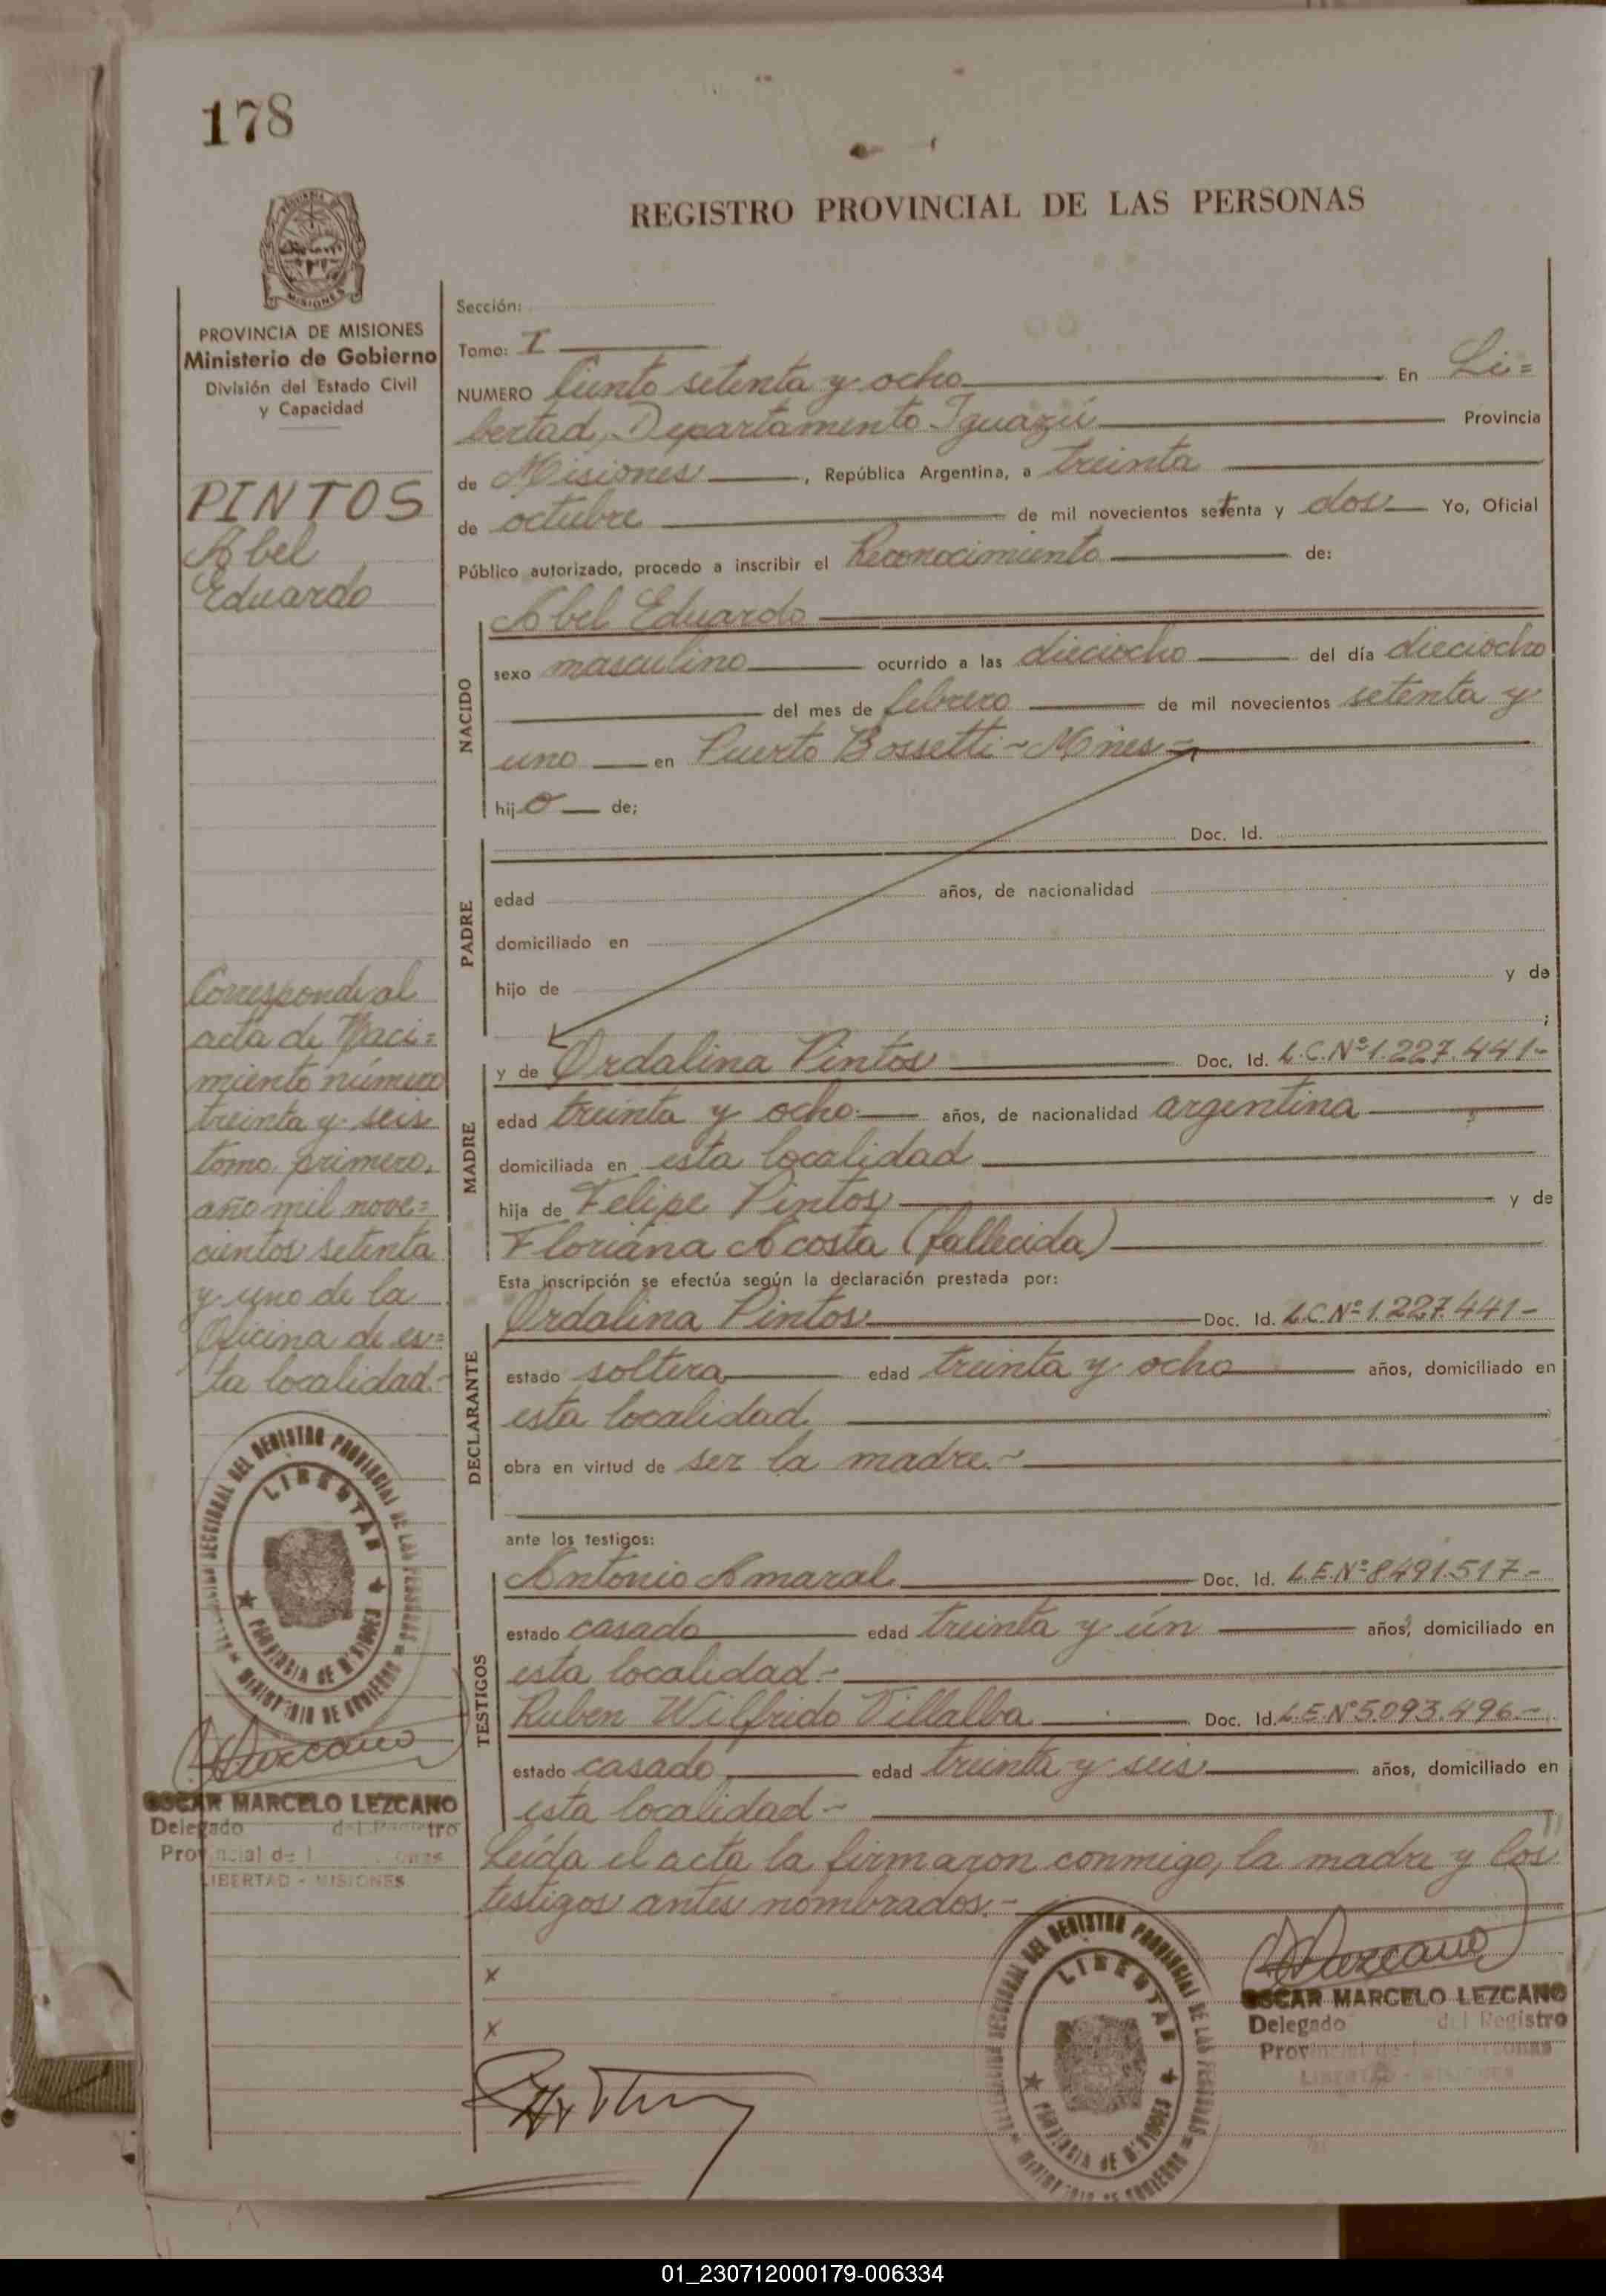 178
REGISTRO PROVINCIAL DE LAS PERSONAS
MISIONES
PROVINCIA DE MISIONES
Ministerio de Gobierno
División del Estado Civil
y Capacidad
PINTOS
Abel
Eduardo
Corresponde al
acta de Naci=
miento número
treinta y seis
tomo primero,
año mil nove=
cientos setenta
y uno de la
Oficina de es=
ta localidad.-
LIBERTAD
PROVINCIA DE MISIONES
OSCAR MARCELO LEZCANO
Delegado del Registro
Provincial de l
LIBERTAD - MISIONES
Sección:
Tomo: I
NUMERO Ciento setenta y ocho En Li=
bertad, Departamento Iguazú Provincia
de Misiones, República Argentina, a treinta
de octubre de mil novecientos setenta y dos Yo, Oficial
Público autorizado, procedo a inscribir el Reconocimiento de:
NACIDO
Abel Eduardo
sexo masculino ocurrido a las dieciocho del día dieciocho
del mes de febrero de mil novecientos setenta y
uno en Puerto Bossetti - Mnes -
hijo de;
PADRE
Doc. Id.
edad años, de nacionalidad
domiciliado en
hijo de y de
;
MADRE
y de Ordalina Pintos Doc. Id. L.C.Nº1.227.441-
edad treinta y ocho años, de nacionalidad argentina
domiciliada en esta localidad
hija de Felipe Pintos y de
Floriana Acosta (fallecida)
Esta inscripción se efectúa según la declaración prestada por:
DECLARANTE
Ordalina Pintos Doc. Id. L.C.Nº1.227.441-
estado soltera edad treinta y ocho años, domiciliado en
esta localidad
obra en virtud de ser la madre.-
ante los testigos:
TESTIGOS
Antonio Amaral Doc. Id. L.E.Nº8491.517-
estado casado edad treinta y ún años, domiciliado en
esta localidad.-
Ruben Wilfrido Villalba Doc. Id. L.E.Nº5.093.496.-
estado casado edad treinta y seis años, domiciliado en
esta localidad -
Leída el acta la firmaron conmigo, la madre y los
testigos antes nombrados.-
x
x
LIBERTAD
PROVINCIA DE MISIONES
OSCAR MARCELO LEZCANO
Delegado del Registro
Provincial de las Personas
LIBERTAD - MISIONES
01_230712000179-006334